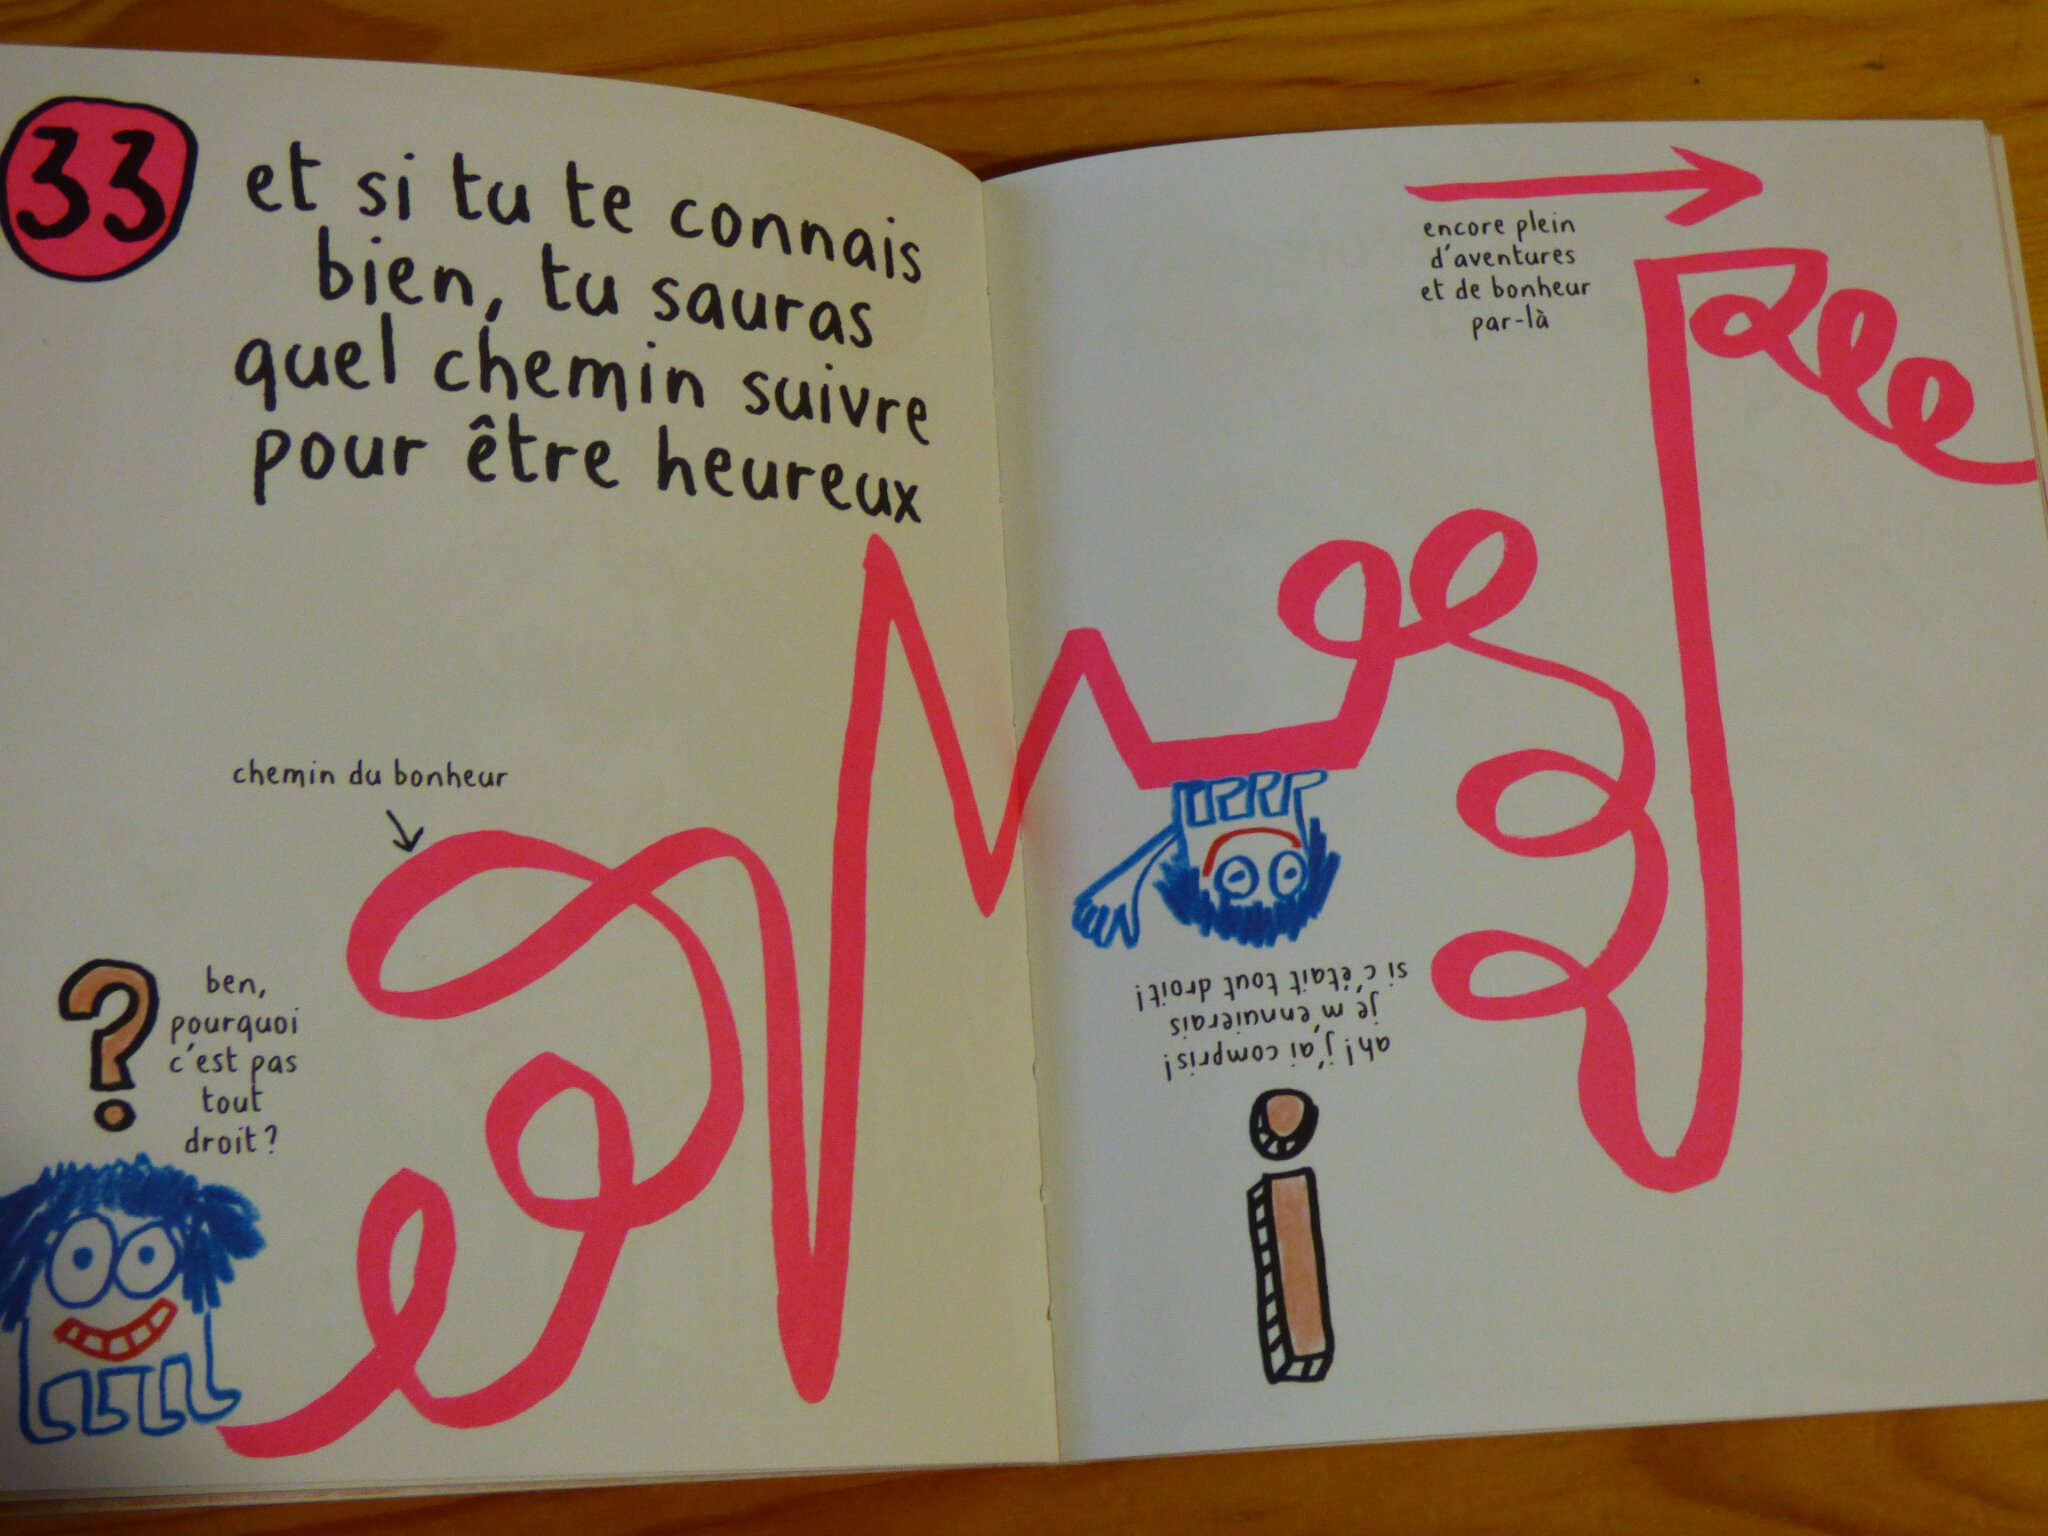 33
et si tu te connais
bien, tu sauras
quel chemin suivre
pour être heureux
chemin du bonheur
?
ben,
pourquoi
c'est pas
tout
droit?
encore plein
d'aventures
et de bonheur
par-là
ah! j'ai compris!
je m'ennuierais
si c'était tout droit!
!